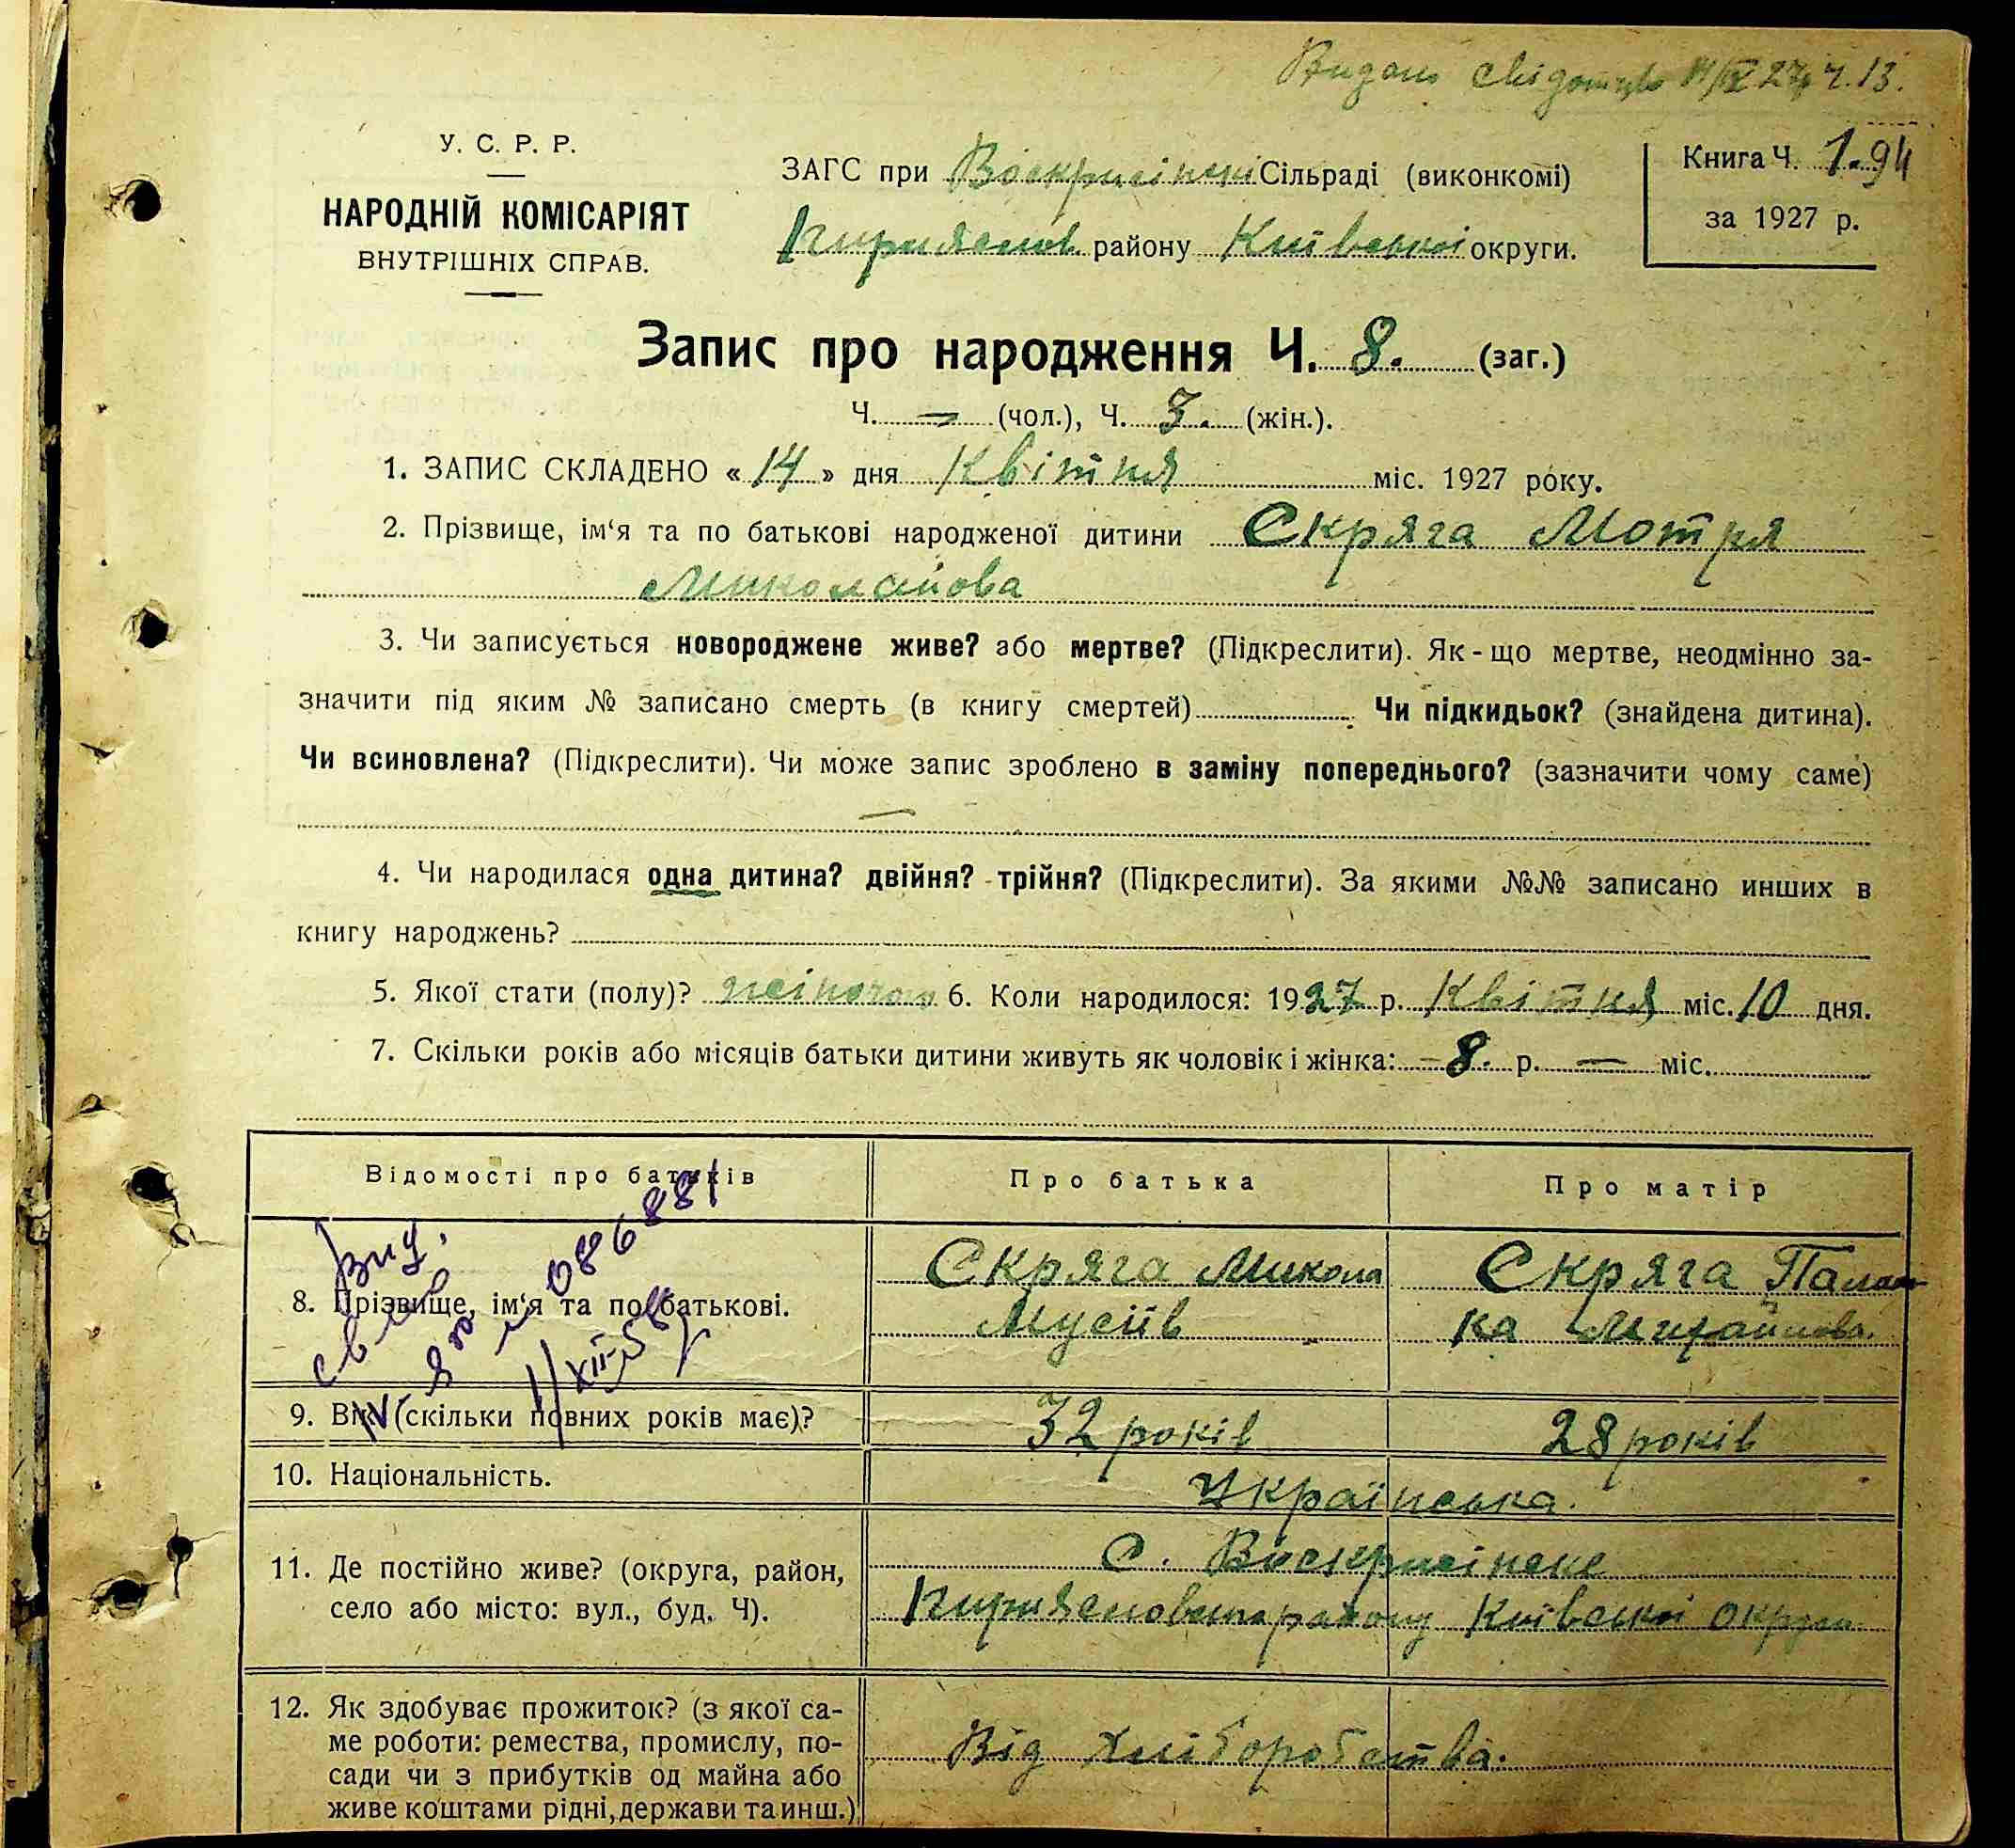 Видано свідотцво 14/IV 27 р ч. 13.
У. С. Р. Р.
НАРОДНІЙ КОМІСАРІЯТ
ВНУТРІШНІХ СПРАВ.
ЗАГС при Воскрисінскі Сільраді (виконкомі)
району Київської округи.
Книга Ч. 1. 94
за 1927 р.
Запис про народження Ч. 8. (заг.)
Ч. — (чол.), Ч. 3. (жін.).
1. ЗАПИС СКЛАДЕНО « 14 » дня Квітня міс. 1927 року.
2. Прізвище, ім‘я та по батькові народженої дитини Скряга Мотря
Миколайова
3. Чи записується новороджене живе? або мертве? (Підкреслити). Як-що мертве, неодмінно за-
значити під яким № записано смерть (в книгу смертей) Чи підкидьок? (знайдена дитина).
Чи всиновлена? (Підкреслити). Чи може запис зроблено в заміну попереднього? (зазначити чому саме)
—
4. Чи народилася одна дитина? двійня? трійня? (Підкреслити). За якими №№ записано инших в
книгу народжень?
5. Якої стати (полу)? жіночой 6. Коли народилося: 1927 р. Квітня міс. 10 дня.
7. Скільки років або місяців батьки дитини живуть як чоловік і жінка: – 8. р. — міс.
Відомості про батьків
Про батька
Про матір
8. Прізвище, ім‘я та по батькові.
Скряга Микола
Мусіїв
Скряга Палаж
ка Михайлова.
086881
9. Вік (скільки повних років має)?
32 років
28 років
10. Національність.
Українська.
11. Де постійно живе? (округа, район,
село або місто: вул., буд. Ч).
С. Воскрисінске
району Київської округи
12. Як здобуває прожиток? (з якої са-
ме роботи: ремества, промислу, по-
сади чи з прибутків од майна або
живе коштами рідні, держави та инш.)
Від хліборобства.